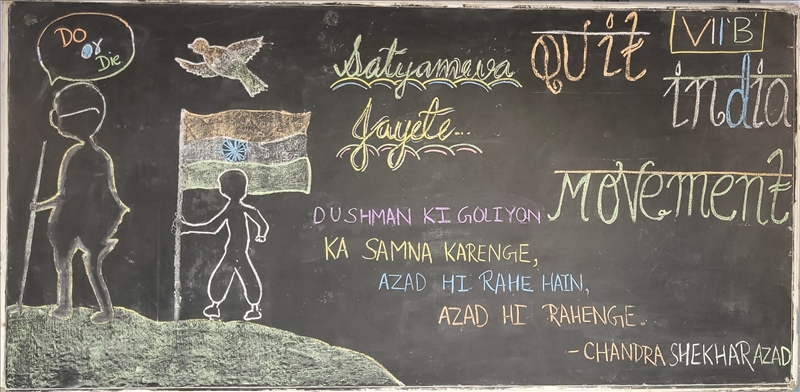 Do
or
Die
Satyameva
Jayete...
QUit
VII'B'
india
MOVEMENT
DUSHMAN KI GOLIYON
KA SAMNA KARENGE,
AZAD HI RAHE HAIN,
AZAD HI RAHENGE.
- CHANDRA SHEKHAR AZAD